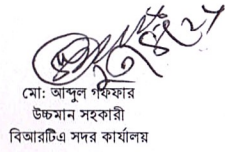 মো: আব্দুল গফফার
উচ্চমান সহকারী
বিআরটিএ সদর কার্যালয়